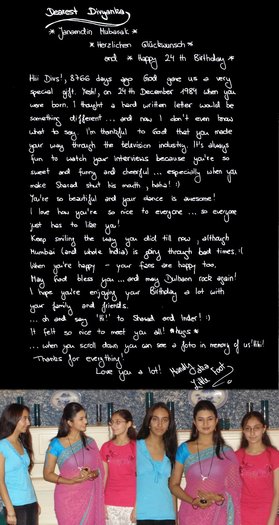 Dearest Divyanka
* Janamdin Mubarak *
* Herzlichen Glückwunsch *
and * Happy 24 th Birthday *
Hii Divs!, 8766 days ago God gave us a very
special gift. Yeah!, on 24 th December 1984 when you
were born. I thought a hard written letter would be
something different ... and now I don't even know
what to say. I'm thankful to God that you made
your way through the television industry. It's always
fun to watch your interviews because you're so
sweet and funny and cheerful ... especially when you
make Sharad shut his mouth, haha! :)
You're so beautiful and your dance is awesome!
I love how you're so nice to everyone ... so everyone
just has to like you!
Keep smiling the way you did til now, although
Mumbai (and whole India) is going through bad times. :(
When you're happy - your fans are happy too.
May God bless you ... and may Dulhann rock again!
I hope you're enjoying your Birthday a lot with
your family and friends.
... oh and say 'Hi!' to Sharad and Inder! :)
It felt so nice to meet you all! *hugs*
... when you scroll down you can see a foto in memory of us! Hihi!
Thanks for everything!
Love you a lot!